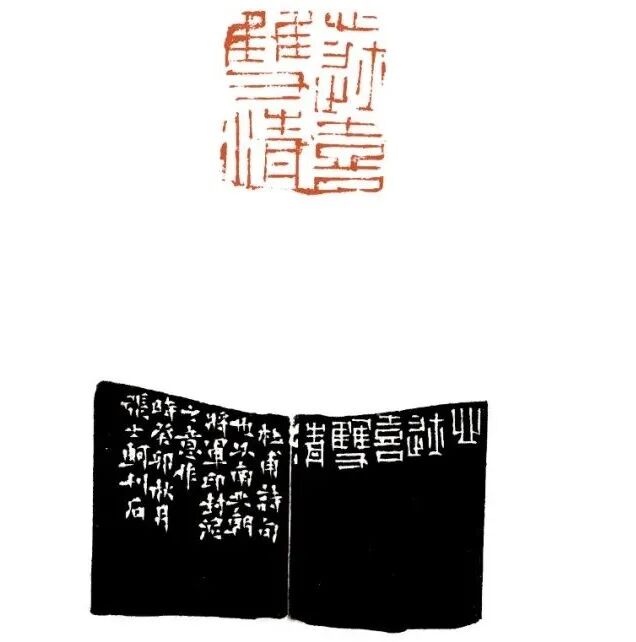 心迹喜
雙清
心迹喜雙清
杜甫詩句
也以南北朝
將軍印封泥
之意作
時癸卯秋月
張士軻石